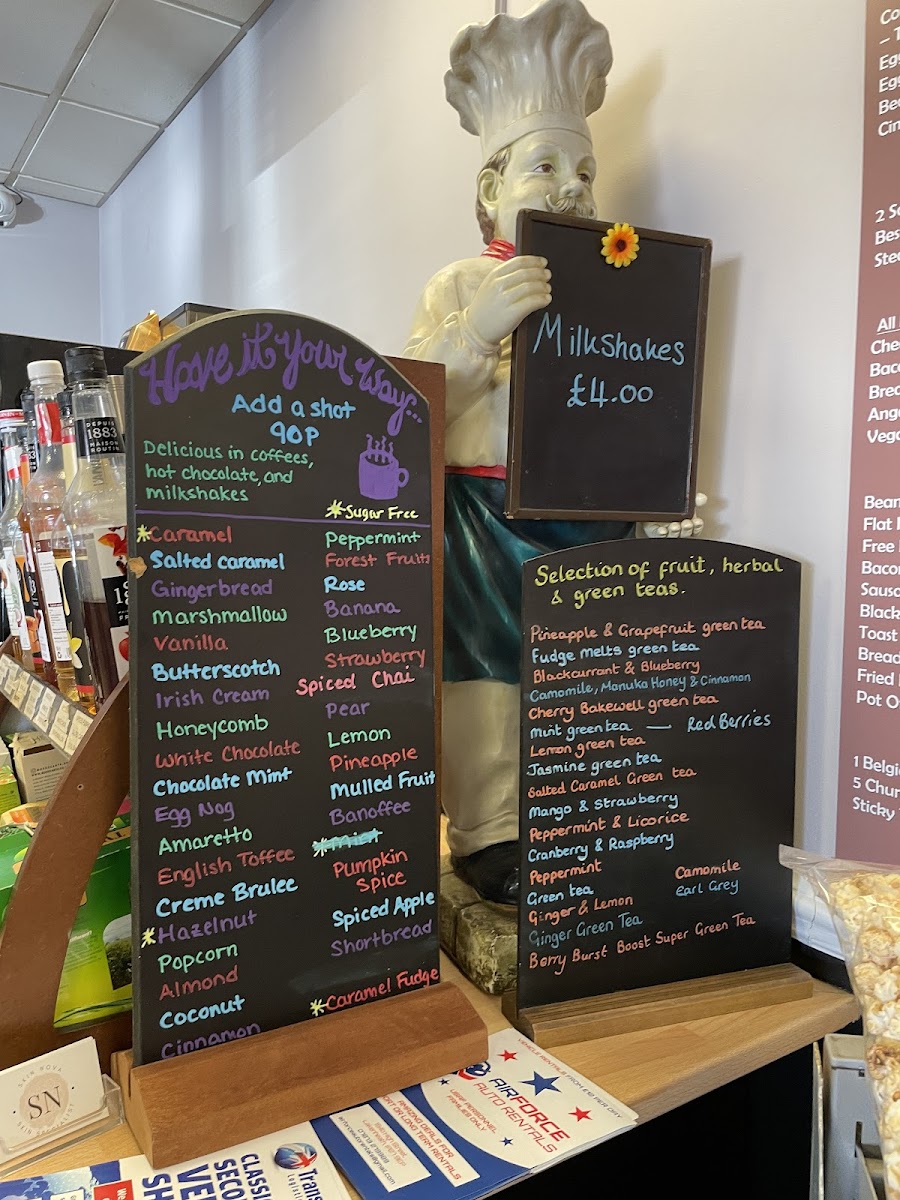 Have it Your Way...
Add a shot
90P
Delicious in coffees,
hot chocolate, and
milkshakes
*Sugar Free
*Caramel
Salted caramel
Gingerbread
Marshmallow
Vanilla
Butterscotch
Irish Cream
Honeycomb
White Chocolate
Chocolate Mint
Egg Nog
Amaretto
English Toffee
Creme Brulee
*Hazelnut
Popcorn
Almond
Coconut
Cinnamon
Peppermint
Forest Fruits
Rose
Banana
Blueberry
Strawberry
Spiced Chai
Pear
Lemon
Pineapple
Mulled Fruit
Banoffee
Pumpkin
Spice
Spiced Apple
Shortbread
*Caramel Fudge
Milkshakes
£4.00
Selection of fruit, herbal
& green teas.
Pineapple & Grapefruit green tea
Fudge Melts green tea
Blackcurrant & Blueberry
Camomile, Manuka Honey & Cinnamon
Cherry Bakewell green tea
Mint green tea — Red Berries
Lemon green tea
Jasmine green tea
Salted Caramel Green tea
Mango & Strawberry
Peppermint & Licorice
Cranberry & Raspberry
Peppermint
Camomile
Green tea
Earl Grey
Ginger & Lemon
Ginger Green Tea
Berry Burst Boost Super Green Tea
DEPUIS
1883
MAISON
ROUTIN
SN
VEHICLE RENTALS FROM £12 PER DAY
AIRFORCE
AUTO RENTALS
USAF PERSONNEL
FAMILIES ONLY
AMAZING DEALS FOR
SHORT OR LONG TERM RENTALS
CLASSI
SECO
VE
SH
Trans
2 S
Bes
Stee
All
Che
Bac
Brea
Ange
Vega
Bean
Flat
Free
Bacon
Sausa
Black
Toast
Bread
Fried
Pot O
1 Belgi
5 Chur
Sticky